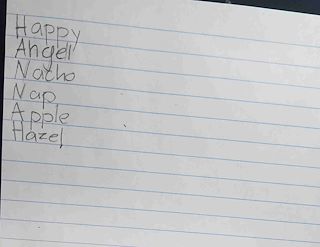 Happy
Angel
Nacho
Nap
Apple
Hazel